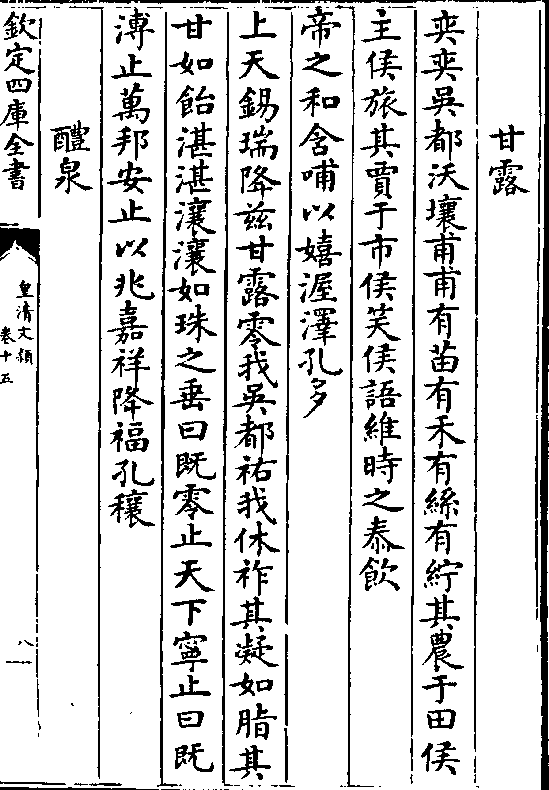 甘露
奕奕吳都沃壤甫甫有苗有禾有絲有紵其農于田侯
主侯旅其賈于市侯笑侯語維時之泰飲
帝之和含哺以嬉渥澤孔多
上天錫瑞降兹甘露零我吳都祐我休祚其凝如脂其
甘如飴湛湛瀼瀼如珠之垂曰既零止天下寧止曰既
漙止萬邦安止以兆嘉祥降福孔穰
醴泉
欽定四庫全書
皇清文穎
卷十五
八